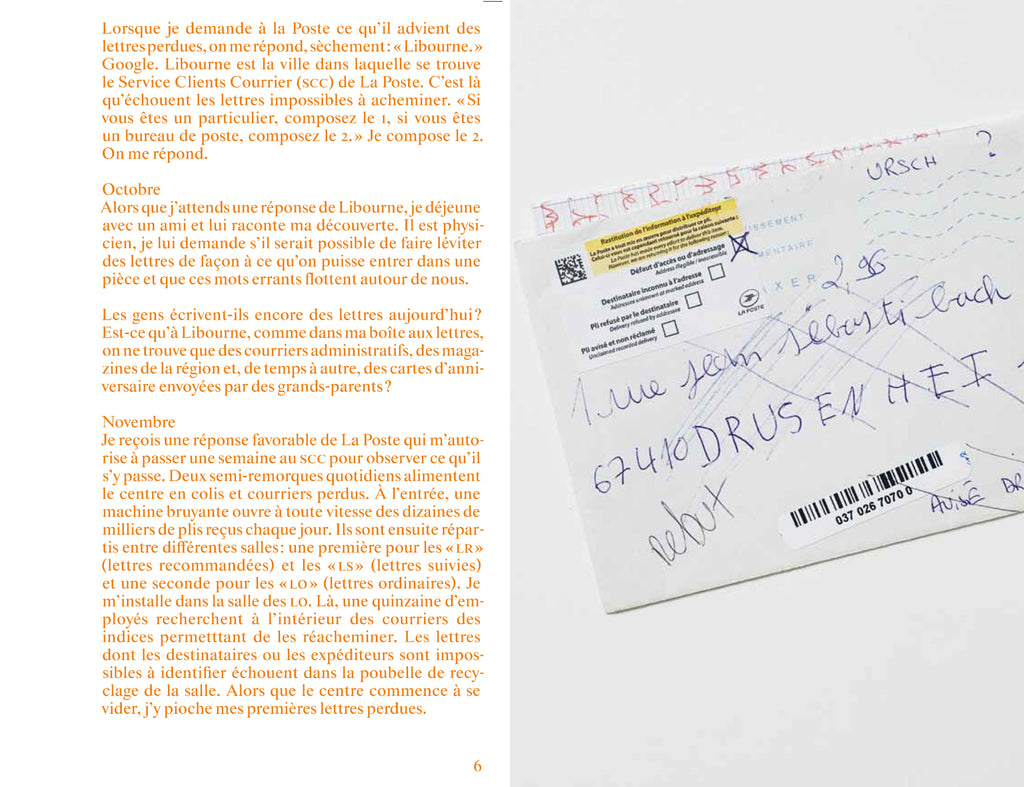 Lorsque je demande à la Poste ce qu'il advient des
lettres perdues, on me répond, sèchement : « Libourne. »
Google. Libourne est la ville dans laquelle se trouve
le Service Clients Courrier (SCC) de La Poste. C'est là
qu'échouent les lettres impossibles à acheminer. « Si
vous êtes un particulier, composez le 1, si vous êtes
un bureau de poste, composez le 2. » Je compose le 2.
On me répond.
Octobre
Alors que j'attends une réponse de Libourne, je déjeune
avec un ami et lui raconte ma découverte. Il est physi-
cien, je lui demande s'il serait possible de faire léviter
des lettres de façon à ce qu'on puisse entrer dans une
pièce et que ces mots errants flottent autour de nous.
Les gens écrivent-ils encore des lettres aujourd'hui ?
Est-ce qu'à Libourne, comme dans ma boîte aux lettres,
on ne trouve que des courriers administratifs, des maga-
zines de la région et, de temps à autre, des cartes d'anni-
versaire envoyées par des grands-parents ?
Novembre
Je reçois une réponse favorable de La Poste qui m'auto-
rise à passer une semaine au SCC pour observer ce qu'il
s'y passe. Deux semi-remorques quotidiens alimentent
le centre en colis et courriers perdus. À l'entrée, une
machine bruyante ouvre à toute vitesse des dizaines de
milliers de plis reçus chaque jour. Ils sont ensuite répar-
tis entre différentes salles : une première pour les « LR »
(lettres recommandées) et les « LS » (lettres suivies)
et une seconde pour les « LO » (lettres ordinaires). Je
m'installe dans la salle des LO. Là, une quinzaine d'em-
ployés recherchent à l'intérieur des courriers des
indices permetttant de les réacheminer. Les lettres
dont les destinataires ou les expéditeurs sont impos-
sibles à identifier échouent dans la poubelle de recy-
clage de la salle. Alors que le centre commence à se
vider, j'y pioche mes premières lettres perdues.
6
URSCH ?
Restitution de l'information à l'expéditeur
La Poste a tout mis en œuvre pour distribuer ce pli.
Celui-ci vous est cependant retourné pour la raison suivante :
La Poste has made every effort to deliver this item.
However, we are returning it for the following reason :
Défaut d'accès ou d'adressage
Address illegible / inaccessible
Destinataire inconnu à l'adresse
Addressee unknown at marked address
Pli refusé par le destinataire
Delivery refused by addressee
Pli avisé et non réclamé
Unclaimed recorded delivery
LA POSTE
ISSEMENT
MENTAIRE
IXER
2,96
1 rue jean sébasti bach
67410 DRUSENHEI
rebut
037 026 7070 0
AVISÉ